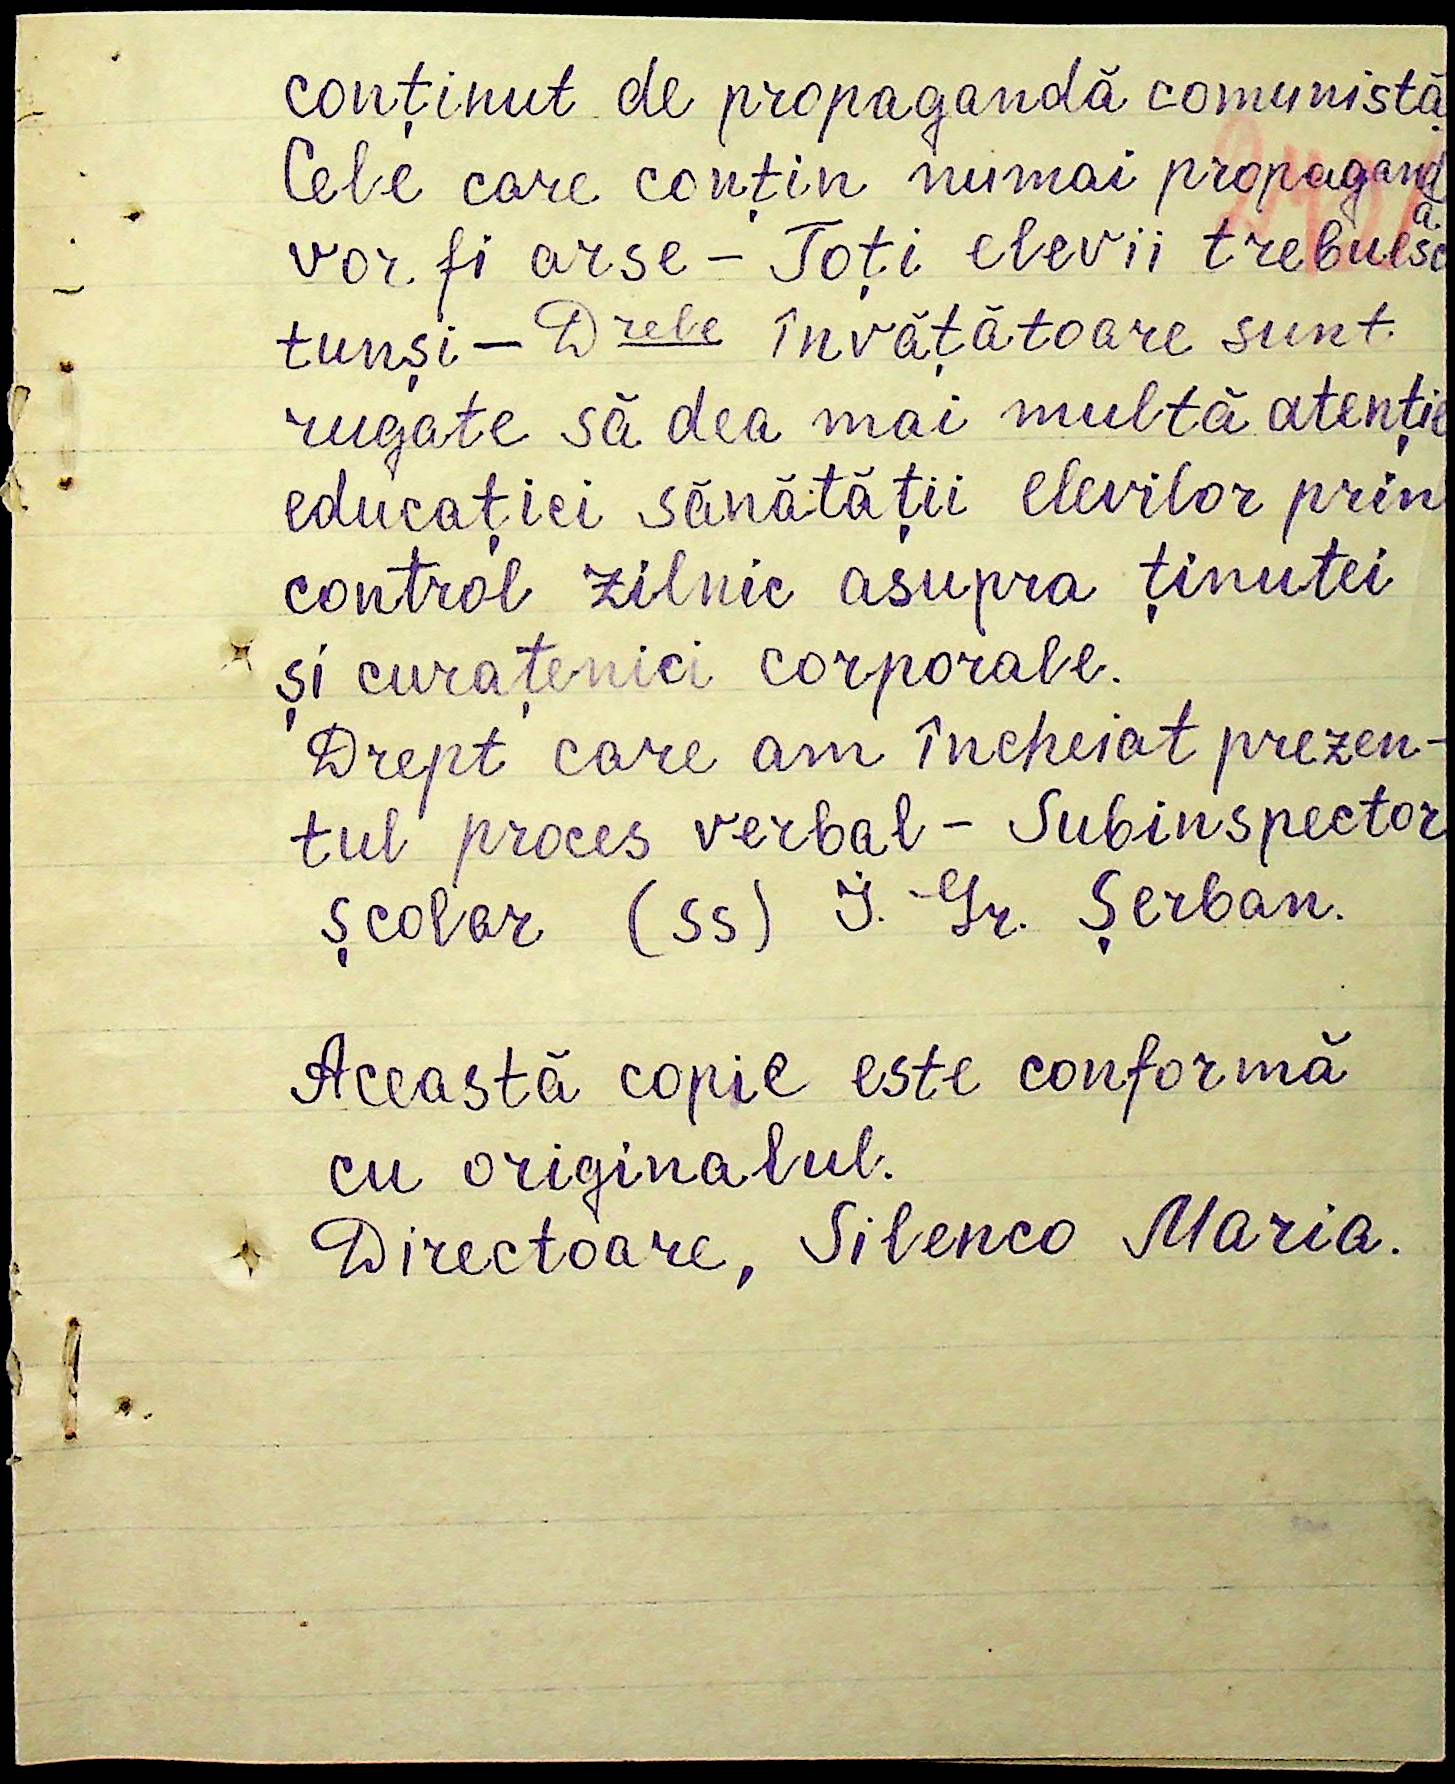 conținut de propagandă comunistă
Cele care conțin numai propagandă
vor fi arse – Toți elevii trebuesc
tunși – Drele învățătoare sunt
rugate să dea mai multă atenție
educației sănătății elevilor prin
control zilnic asupra ținutei
și curațeniei corporale.
Drept care am încheiat prezen-
tul proces verbal – Subinspector
școlar (ss) I. Gr. Șerban.
Această copie este conformă
cu originalul.
Directoare, Silenco Maria.